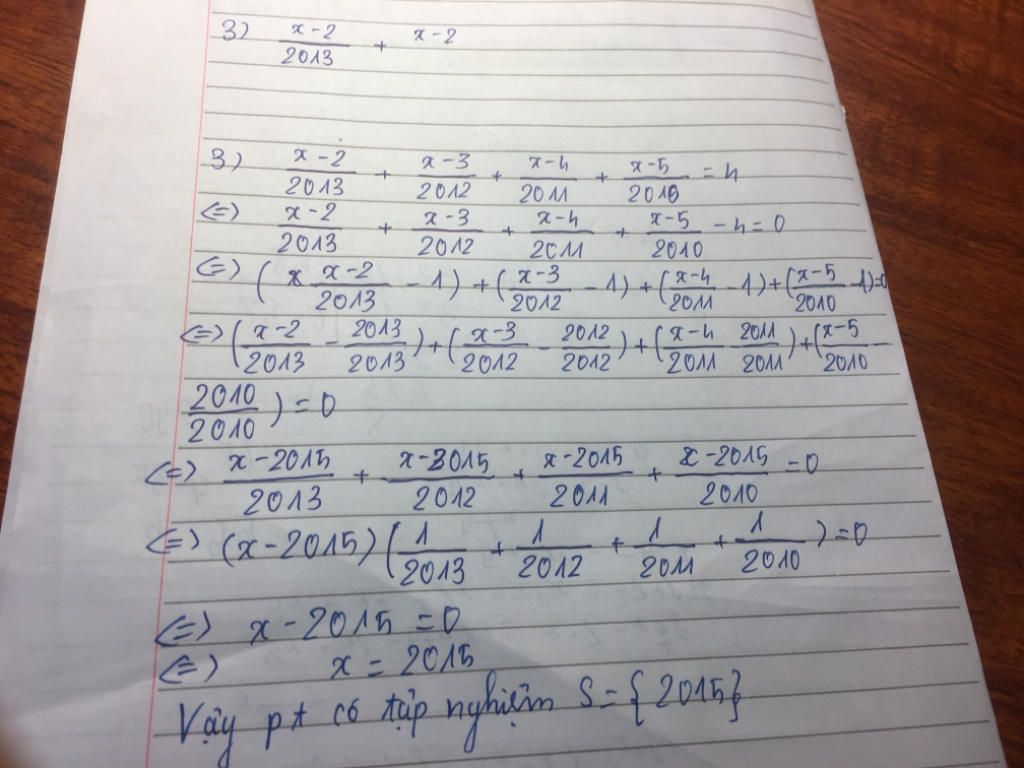 3) x-2/2013 + x-2
3) x-2/2013 + x-3/2012 + x-4/2011 + x-5/2010 = 4
<=> x-2/2013 + x-3/2012 + x-4/2011 + x-5/2010 - 4 = 0
<=> (x-2/2013 - 1) + (x-3/2012 - 1) + (x-4/2011 - 1) + (x-5/2010 - 1) = 0
<=> (x-2/2013 - 2013/2013) + (x-3/2012 - 2012/2012) + (x-4/2011 - 2011/2011) + (x-5/2010 -
2010/2010) = 0
<=> x-2015/2013 + x-2015/2012 + x-2015/2011 + x-2015/2010 = 0
<=> (x-2015)(1/2013 + 1/2012 + 1/2011 + 1/2010) = 0
<=> x-2015 = 0
<=> x = 2015
Vậy pt có tập nghiệm S = {2015}